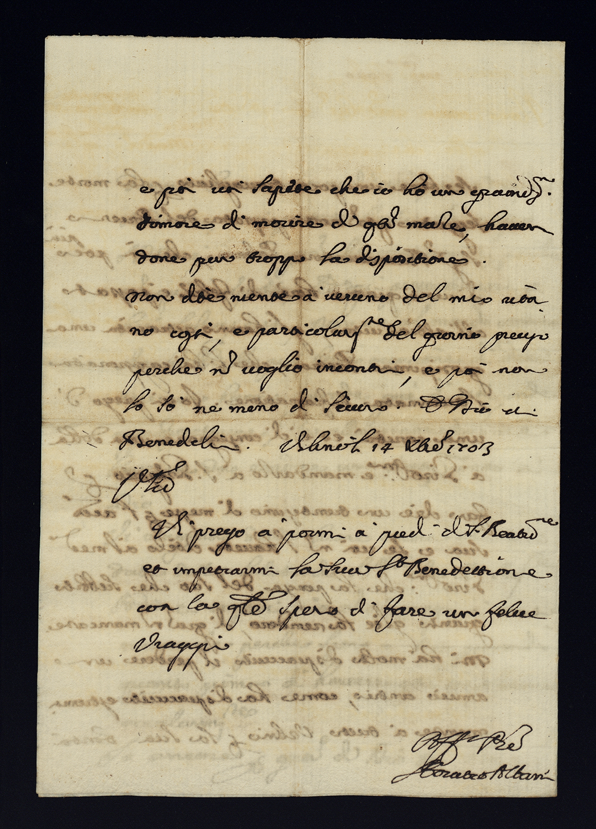 e poi voi sapete che io hò un grandmo
timore di morire di qto male, haven
done pur troppo la disposizione.
non dite niente à veruno del mio ritor
no costì, e particolarmte del giorno preciso
perche nn voglio incontri, e poi non
lo so ne meno di sicuro. E Dio vi
Benedichi. Urbino li 14 Xbre 1703
Vi prego à pormi à piedi di S. Beatne
et impetrarmi la sua Sta Benedittione
con la qle spero di fare un felice
viaggio
Affmo Pre
Horatio Albani